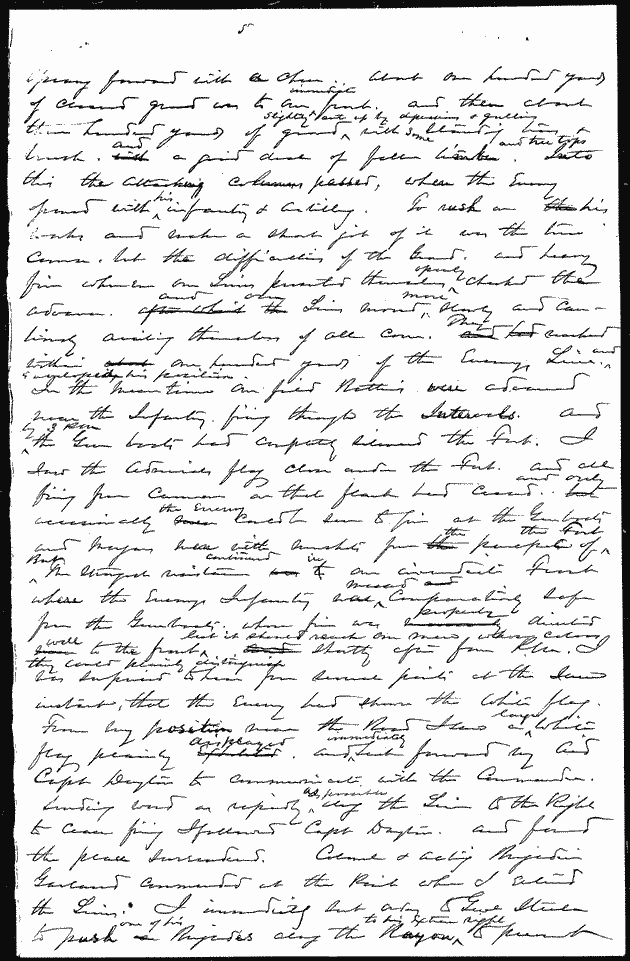 5
sprang forward with a cheer. About one hundred yards
immediate
of cleared ground was to our front. and then about
slightly cut up by depressions & gullies
three hundred yards of ground, with some standing trees &
and and tree tops
brush. with a good deal of fallen timber. Into
this the attacking columns passed, when the Enemy
his
opened with infantry & artillery. To rush on the his
works and make a short job of it was the true
course. but the difficulties of the Ground. and heavy
openly
fire whenever our Lines presented themselves, checked their
and our more
advance. after which the Lines moved, slowly and Cau-
They
tiously availing themselves of all cover. and had reached
within about one hundred yards of the Enemys Line. and
enveloped his position.
In the meantime our field Batteries were advanced
near the Infantry. firing through the Intervals. and
by 3 P.M.
the Gun boats had completely silenced the Fort. I
saw the Admirals flag close under the Fort. and all
and only
firing from Cannon on that flank had ceased. but
the Enemy
occasionally could be seen to fire at the Gunboats
the the Fort
and with muskets from the parapets of,
But continued in
The stoutest resistance was to our immediate Front
massed and
where the Enemys Infantry was, Comparatively safe
properly
from the Gunboats. whose fire was directed
well lest it should reach our men whose colors
to the front, shortly after four P.M. I
they could plainly distinguish
was surprised to hear from several points at the same
instant, that the Enemy had shown the White flag.
large
From my position near the Road I saw a, White
displayed immediately
flag plainly and, sent forward my Aid
Capt Dayton to communicate with the Commander.
as possible
sending word as rapidly, along the Line to the Right
to cease firing I followed Capt Dayton. and found
the place surrendered. Colonel & acting Brigadier
Garland commanded at the Point where I Entered
the Lines. I immediately sent orders to Genl Steele
one of his to his Extreme right
to push a Brigades along the Bayou, to prevent